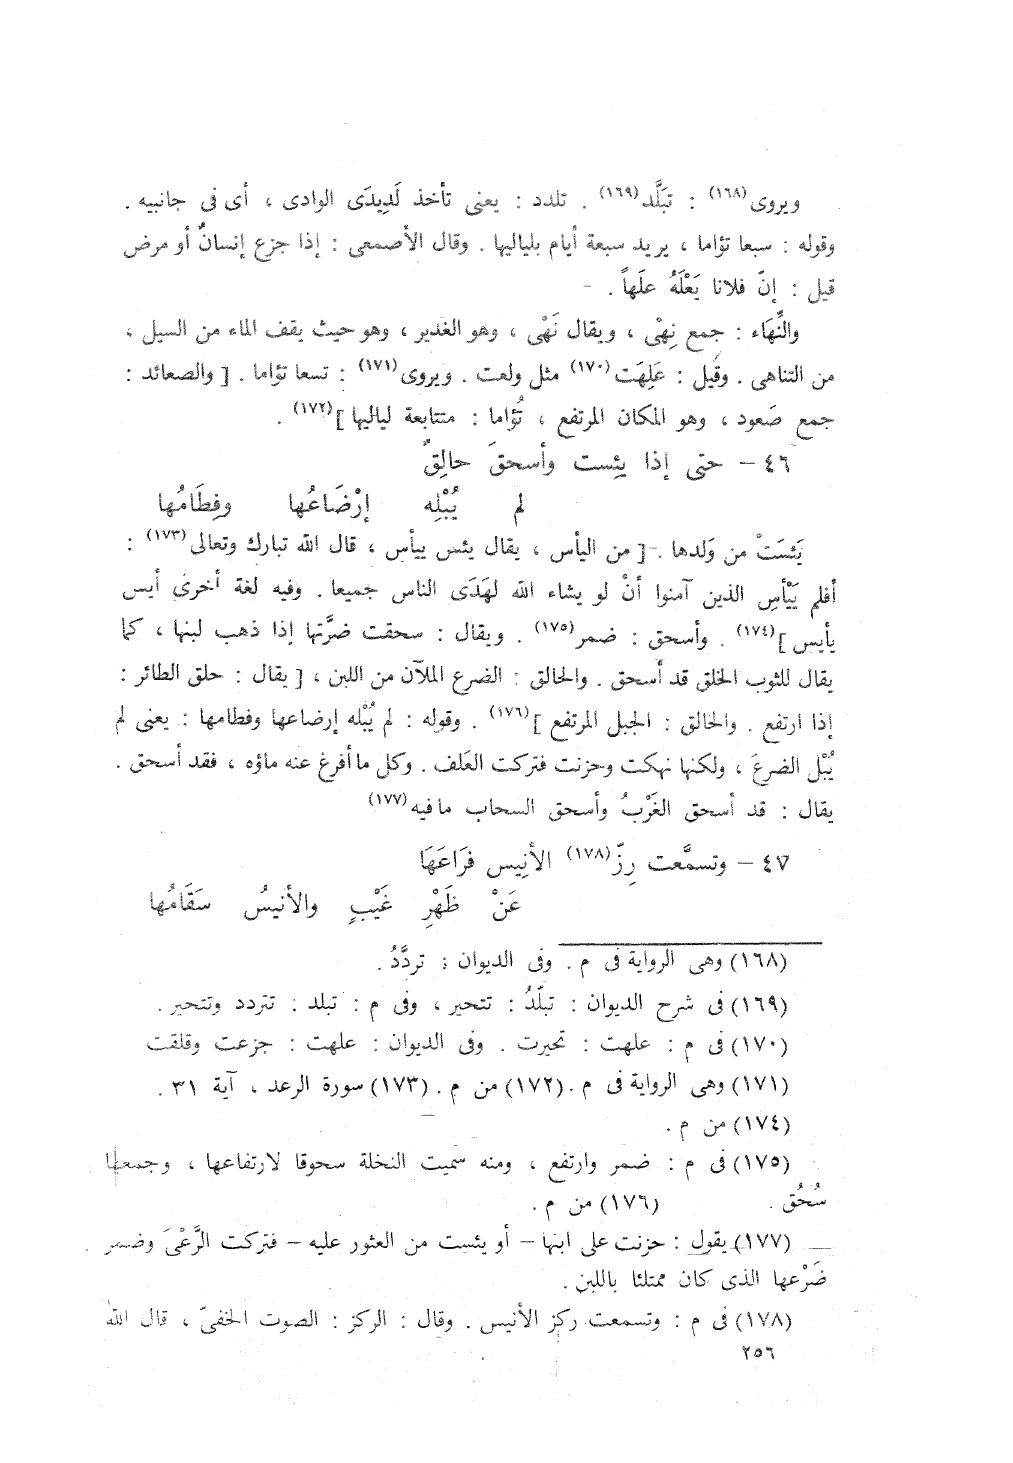 ويروى(١٦٨) : تبَلَّد(١٦٩) . تلدد : يعنى تأخذ لَدِيدَى الوادى ، أى فى جانبيه .
وقوله : سبعا تؤاما ، يريد سبعة أيام بلياليها . وقال الأصمعى : إذا جزع إنسانٌ أو مرض
قيل : إنّ فلانا يَعْلَهُ علَهاً .
والنِّهَاء : جمع نِهْى ، ويقال نَهْى ، وهو الغدير ، وهو حيث يقف الماء من السيل ،
من التناهى . وقيل : عَلِهَت(١٧٠) مثل ولعت . ويروى(١٧١) : تسعا تؤاما . [ والصعائد :
جمع صَعود ، وهو المكان المرتفع ، تُؤاما : متتابعة لياليها ](١٧٢) .
٤٦ – حتى إذا يئست وأسحقَ حالِقٌ
لم يُبْلِه إرْضَاعُها وفِطَامُها
يَئسَتْ من وَلدها . [ من اليأس ، يقال يئس ييأس ، قال الله تبارك وتعالى(١٧٣) :
أفلم يَيْأسِ الذين آمنوا أنْ لو يشاء الله لهَدَى الناس جميعا . وفيه لغة أخرى أيس
يأيس ](١٧٤) . وأسحق : ضمر(١٧٥) . ويقال : سحقت ضرَّتها إذا ذهب لبنها ، كما
يقال للثوب الخلق قد أسحق . والحالق : الضرع الملآن من اللبن ، [ يقال : حلق الطائر :
إذا ارتفع . والحالق : الجبل المرتفع ](١٧٦) . وقوله : لم يُبْله إرضاعها وفطامها : يعنى لم
يُبْل الضرعَ ، ولكنها نهكت وحزنت فتركت العَلف . وكل ما أفرغ عنه ماؤه ، فقد أسحق .
يقال : قد أسحق الغَرْبُ وأسحق السحاب ما فيه(١٧٧)
٤٧ – وتسمَّعت رِزّ(١٧٨) الأنِيس فَرَاعَهَا
عَنْ ظَهْرِ غَيْبٍ والأنيسُ سَقَامُها
(١٦٨) وهى الرواية فى م . وفى الديوان : تردَّدُ .
(١٦٩) فى شرح الديوان : تبلّدُ : تتحير ، وفى م : تبلد : تتردد وتتحير .
(١٧٠) فى م : علهت : تحيرت . وفى الديوان : علهت : جزعت وقلقت
(١٧١) وهى الرواية فى م . (١٧٢) من م . (١٧٣) سورة الرعد ، آية ٣١ .
(١٧٤) من م .
(١٧٥) فى م : ضمر وارتفع ، ومنه سميت النخلة سحوقا لارتفاعها ، وجمعها
سُحُق . (١٧٦) من م .
(١٧٧) يقول : حزنت على ابنها – أو يئست من العثور عليه – فتركت الرَّعْىَ وضمر
ضَرْعها الذى كان ممتلئا باللبن .
(١٧٨) فى م : وتسمعت ركز الأنيس . وقال : الركز : الصوت الخفىّ ، قال الله
٢٥٦